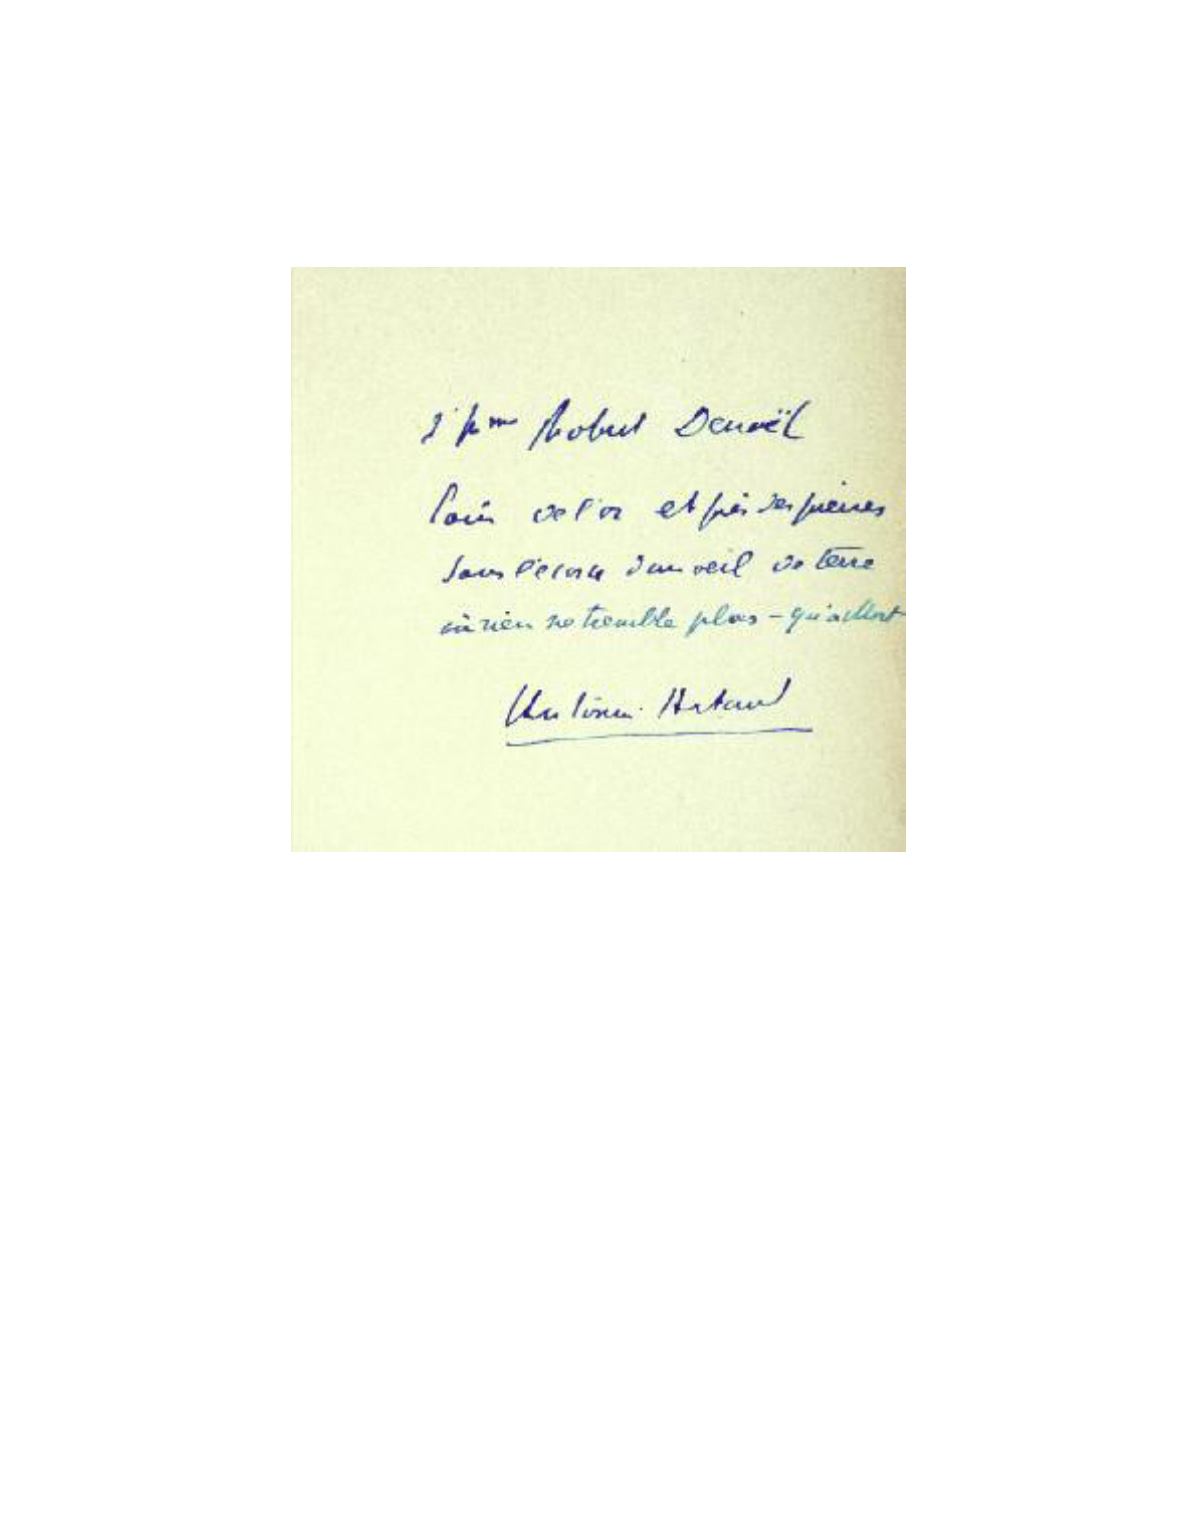 Robert Denoël
loin de l'or et près des pierres
dans l'écorce d'un oeil de terre
où rien ne tremble plus – que la Mort
Antonin Artaud